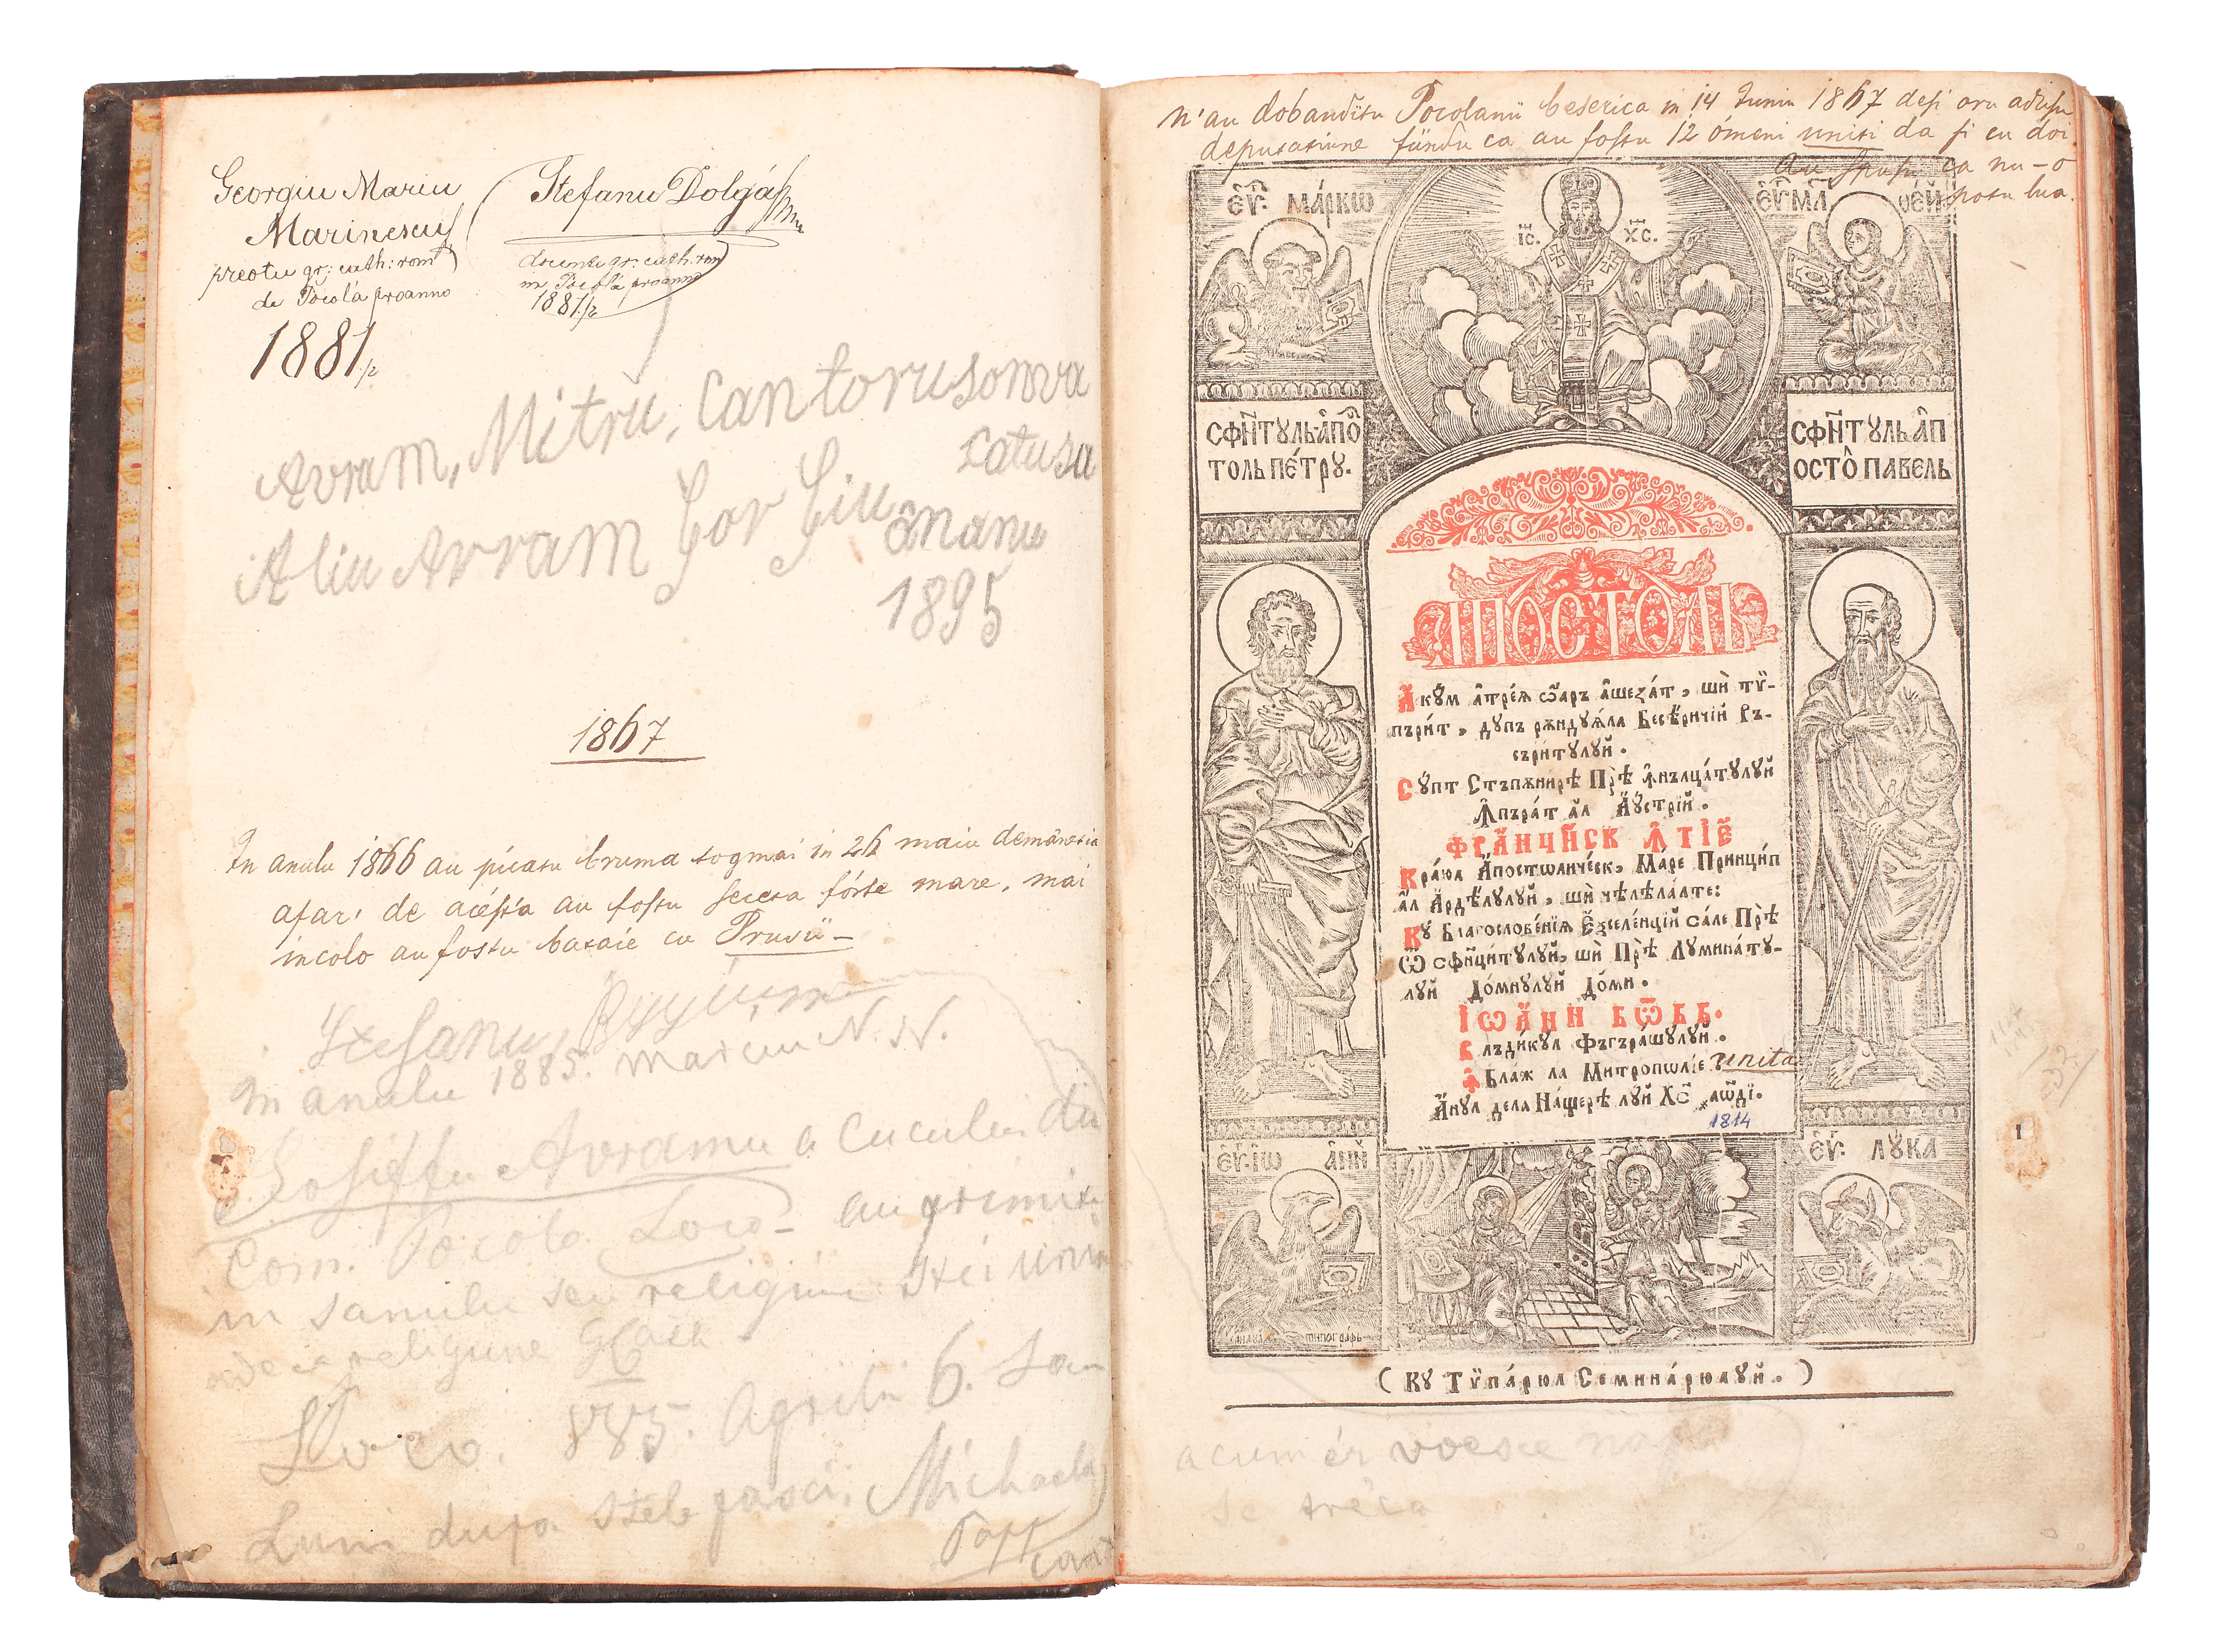 Georgiu Mariu
Marinescu
preotu gr: cath: rom
de Pocola proanno
1881/2
Stefanu Dolgáş
docente gr: cath. rom
in Pocola proanno
1881/2
Avram, Mitru, Cantorusonva
catusa
Aliu Avram
ânanu
1895
1867
In anulu 1866 au picatu bruma togmai in 26 maiu demânetia
afar' de acésta au fostu seceta fórte mare, mai
incolo au fostu bataie cu Prusii —
Stefanu
in anulu 1885. Marciu N. N.
Iosiffu Avramu a Cucului din
Com. Pocola Loco — au primitu
in sanulu seu religiuni Stei unite
adeca religiune Gr Cath
Loco. 1885. Aprilu 6.
Luni dupa Stele pasci. Michaelu
Papp
Cant
N'au dobanditu Pocolanii beserica in 14 Juniu 1867 desi aru adusu
deputatiune fiindu ca au fostu 12 ómeni uniti da si cu doi
au spusu ca nu-o
potu lua.
є҆ѵ҃: ма́ркѡ
І҆С. Х҃С.
є҆ѵ҃ МА҃ѲЕ́Й
СФН҃ТꙋЛЬ А҆ПО҃
ТОЛЬ ПЕ́ТРꙋ.
СФН҃ТꙋЛЬ А҆П
ОСТО҃ ПАВЕЛЬ
АПОСТОЛЬ
А҆кꙋ́м а҆тре́ѧ ѡ҆а́рь а҆шеза́т, шѝ тѷ-
пъри́т, дꙋпъ рѫндꙋѧ́ла Бесѣ́ричїй Ръ-
съри́тꙋлꙋй.
Сꙋ́пт Стъпѫни́рѣ Прѣ̀ ꙟнълца́тꙋлꙋй
Ꙟпъра́т а҆л А҆́ꙋстрїй.
ФРА҆НЧИ́СК Ꙟ҆ТІ́Е
Кра́юл А҆постѡли́ческ, Маре Принци́п
а҆л А҆рдѣ́лꙋлꙋй, шѝ чѣлѣла́лте:
Кꙋ Благослове́нїѧ Е҆ѯеле́нцїй са́ле Прѣ̀
Ѡ҆ сфинци́тꙋлꙋй, шѝ Прѣ̀ Лꙋмина́тꙋ-
лꙋй До́мнꙋлꙋй До́мн.
ІѠА҆́НН БѠ҃ББ.
Влъди́кꙋл Фъгъра́шꙋлꙋй.
Ꙟ Бла́ж ла Митрополі́е unita
А҆́нꙋл дела На́щерѣ лꙋй Хс҃ ҂аѿді.
1814
є҆ѵ҃: І҆Ѡ А҆НН
є҆ѵ҃: ЛꙋКА
(Кꙋ Тѷпа́рюл Семина́рюлꙋй.)
I
acum er voesce
se tréca